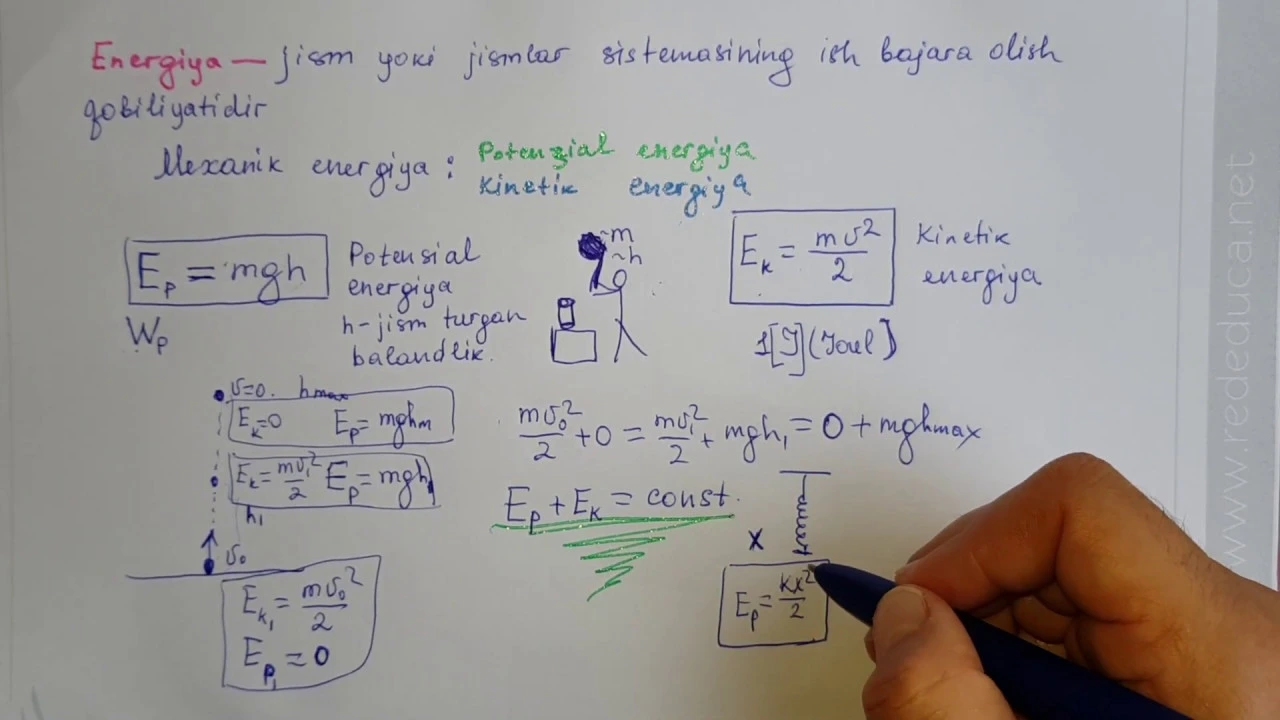 Energiya — jism yoki jismlar sistemasining ish bajara olish
qobiliyatidir
Mexanik energiya : Potenzial energiya
Kinetik energiya
E_p = mgh
W_p
Potensial
energiya
h-jism turgan
balandlik.
~m
~h
E_k = mυ²/2
Kinetik
energiya
1[J](Joul)
υ=0. hmax
E_k=0 E_p=mghm
E_k=mυ₁²/2 E_p=mgh₁
h₁
υ₀
E_k₁ = mυ₀²/2
E_p₁ = 0
mυ₀²/2 + 0 = mυ₁²/2 + mgh₁ = 0 + mghmax
E_p + E_k = const.
x
E_p = kx²/2
www.rededuca.net